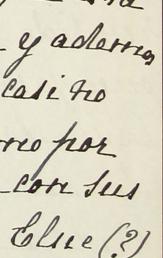 y ademas
casi no
por
con sus
Elsie (?)